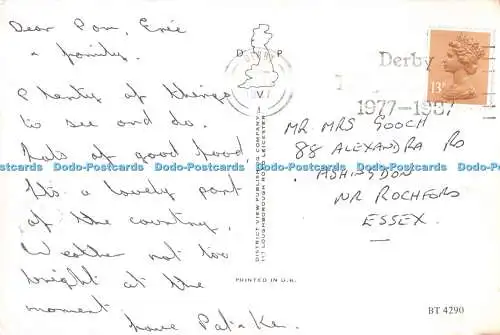 Dear Pam, Eric
& family.
Plenty of things
to see and do.
Lots of good food,
It's a lovely part
of the country.
Weather not too
bright at the
moment
love Pat & Ken.
D P
V
DISTRICT VIEW PUBLISHING COMPANY
117 LOUGHBOROUGH ROAD LEICESTER
PRINTED IN U.K.
Derby
1977-1981
13P
MR MRS GOOCH
88 ALEXANDRA RD
ASHINGDON
NR ROCHFORD
ESSEX.
BT 4290
Dodo-Postcards Dodo-Postcards Dodo-Postcards Dodo-Postcards